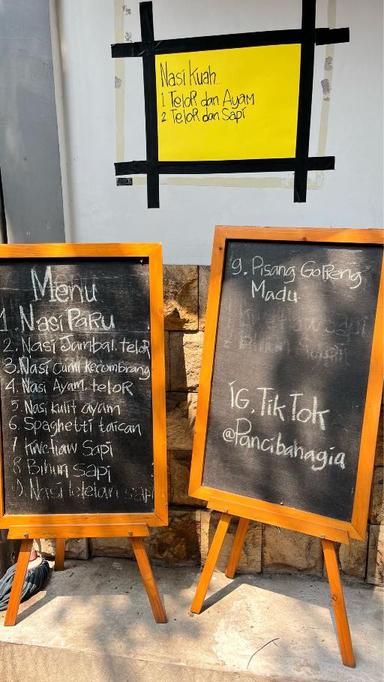 Nasi Kuah
1 Telor dan Ayam
2 Telor dan Sapi
Menu
1. Nasi Paru
2. Nasi Jambal telor
3. Nasi Cumi kecombrang
4. Nasi Ayam telor
5. Nasi kulit ayam
6. Spaghetti taican
7 Kwetiaw Sapi
8 Bihun sapi
9. Nasi tetelan sapi
9. Pisang GoReng
Madu
IG. Tik Tok
@Pancibahagia